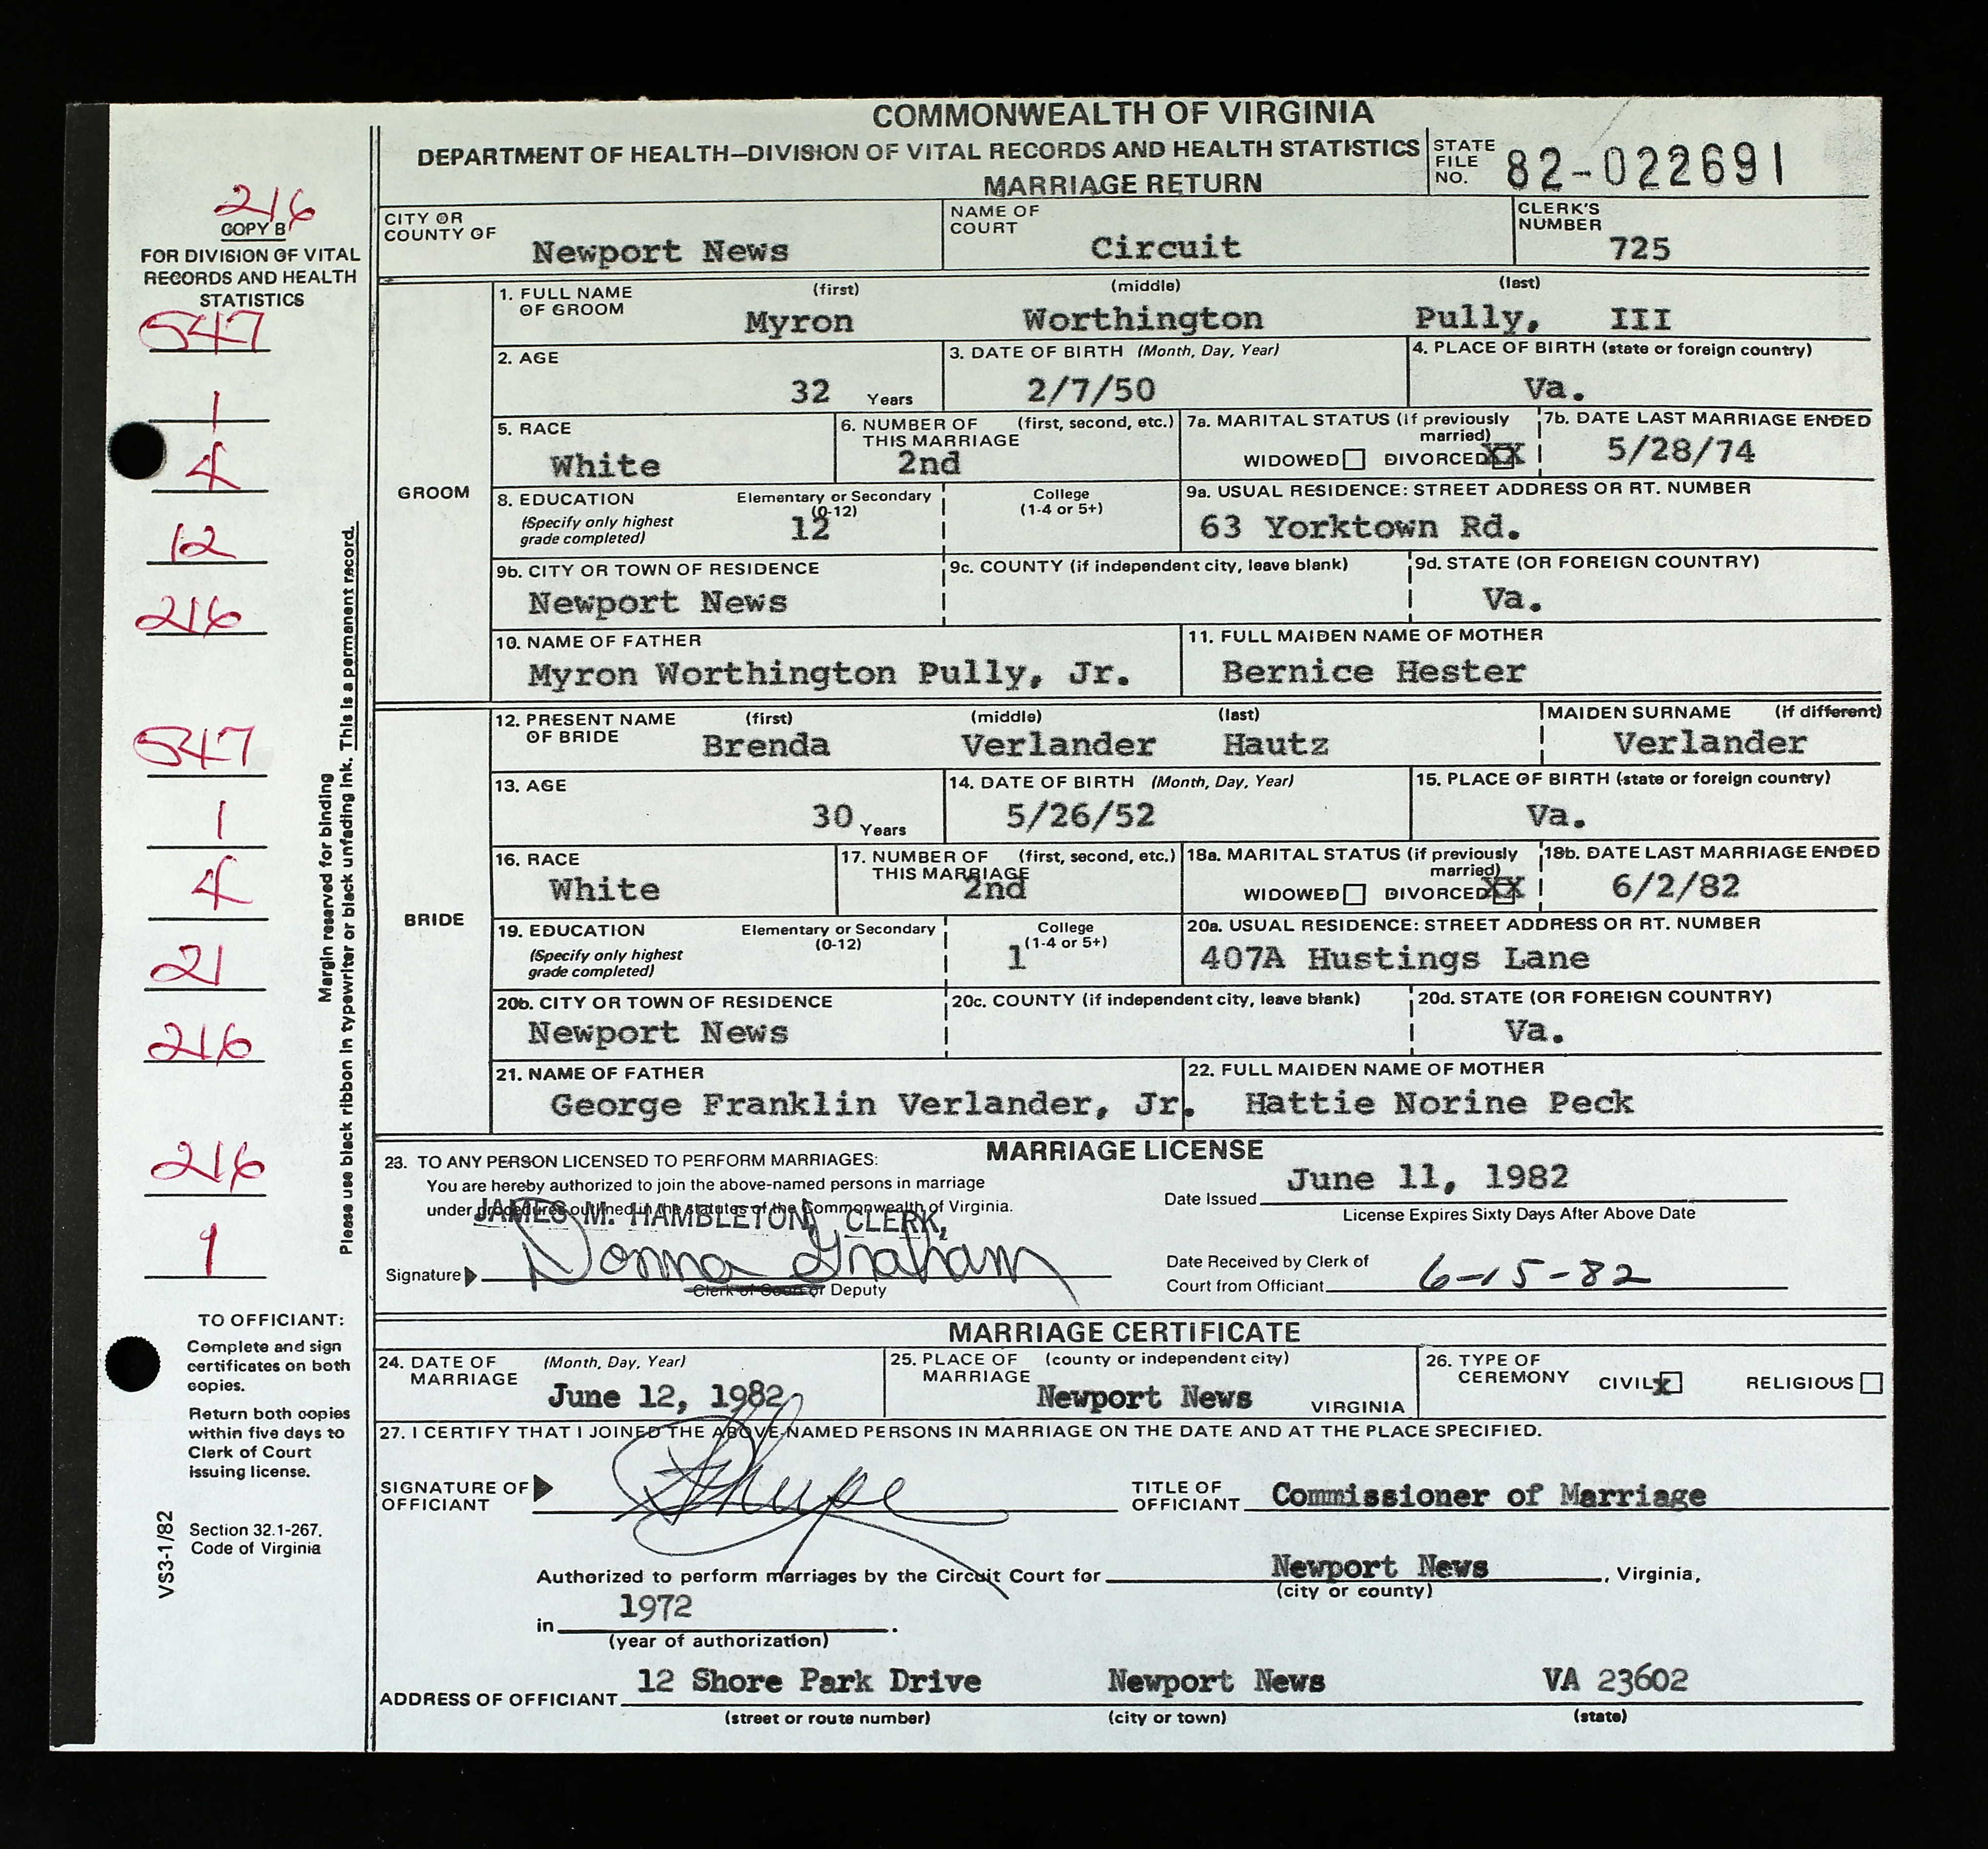 COMMONWEALTH OF VIRGINIA
DEPARTMENT OF HEALTH—DIVISION OF VITAL RECORDS AND HEALTH STATISTICS
MARRIAGE RETURN
STATE FILE NO. 82-022691
216
COPY B
FOR DIVISION OF VITAL
RECORDS AND HEALTH
STATISTICS
547
1
4
12
216
547
1
4
21
216
216
1
Margin reserved for binding
Please use black ribbon in typewriter or black unfading ink. This is a permanent record.
TO OFFICIANT:
Complete and sign
certificates on both
copies.
Return both copies
within five days to
Clerk of Court
issuing license.
Section 32.1-267,
Code of Virginia
VS3-1/82
CITY OR COUNTY OF Newport News
NAME OF COURT Circuit
CLERK'S NUMBER 725
GROOM
1. FULL NAME OF GROOM (first) (middle) (last)
Myron Worthington Pully, III
2. AGE 32 Years
3. DATE OF BIRTH (Month, Day, Year) 2/7/50
4. PLACE OF BIRTH (state or foreign country) Va.
5. RACE White
6. NUMBER OF THIS MARRIAGE (first, second, etc.) 2nd
7a. MARITAL STATUS (if previously married) WIDOWED DIVORCED XX
7b. DATE LAST MARRIAGE ENDED 5/28/74
8. EDUCATION (Specify only highest grade completed) Elementary or Secondary (0-12) 12 College (1-4 or 5+)
9a. USUAL RESIDENCE: STREET ADDRESS OR RT. NUMBER 63 Yorktown Rd.
9b. CITY OR TOWN OF RESIDENCE Newport News
9c. COUNTY (if independent city, leave blank)
9d. STATE (OR FOREIGN COUNTRY) Va.
10. NAME OF FATHER Myron Worthington Pully, Jr.
11. FULL MAIDEN NAME OF MOTHER Bernice Hester
BRIDE
12. PRESENT NAME OF BRIDE (first) (middle) (last)
Brenda Verlander Hautz
MAIDEN SURNAME (if different) Verlander
13. AGE 30 Years
14. DATE OF BIRTH (Month, Day, Year) 5/26/52
15. PLACE OF BIRTH (state or foreign country) Va.
16. RACE White
17. NUMBER OF THIS MARRIAGE (first, second, etc.) 2nd
18a. MARITAL STATUS (if previously married) WIDOWED DIVORCED XX
18b. DATE LAST MARRIAGE ENDED 6/2/82
19. EDUCATION (Specify only highest grade completed) Elementary or Secondary (0-12) College (1-4 or 5+) 1
20a. USUAL RESIDENCE: STREET ADDRESS OR RT. NUMBER 407A Hustings Lane
20b. CITY OR TOWN OF RESIDENCE Newport News
20c. COUNTY (if independent city, leave blank)
20d. STATE (OR FOREIGN COUNTRY) Va.
21. NAME OF FATHER George Franklin Verlander, Jr.
22. FULL MAIDEN NAME OF MOTHER Hattie Norine Peck
MARRIAGE LICENSE
23. TO ANY PERSON LICENSED TO PERFORM MARRIAGES:
You are hereby authorized to join the above-named persons in marriage
under procedures outlined in the statutes of the Commonwealth of Virginia.
JAMES M. HAMBLETON, CLERK,
Signature Donna Graham
Clerk of Court or Deputy
Date Issued June 11, 1982
License Expires Sixty Days After Above Date
Date Received by Clerk of
Court from Officiant 6-15-82
MARRIAGE CERTIFICATE
24. DATE OF MARRIAGE (Month, Day, Year) June 12, 1982
25. PLACE OF MARRIAGE (county or independent city) Newport News VIRGINIA
26. TYPE OF CEREMONY CIVIL X RELIGIOUS
27. I CERTIFY THAT I JOINED THE ABOVE-NAMED PERSONS IN MARRIAGE ON THE DATE AND AT THE PLACE SPECIFIED.
SIGNATURE OF OFFICIANT
TITLE OF OFFICIANT Commissioner of Marriage
Authorized to perform marriages by the Circuit Court for Newport News, Virginia,
(city or county)
in 1972.
(year of authorization)
ADDRESS OF OFFICIANT 12 Shore Park Drive Newport News VA 23602
(street or route number) (city or town) (state)